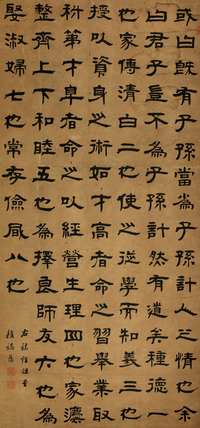 或曰既有子孫當為子孫計人之情也余
曰君子豈不為子孫計然有道矣種德一
也家傳清白二也使之從學而知義三也
授以資身之術如才高者命之習舉業取
科第才卑者命之以經營生理四也家灋
整齊上下和睦五也為擇良師友六也為
娶淑婦七也常存儉風八也